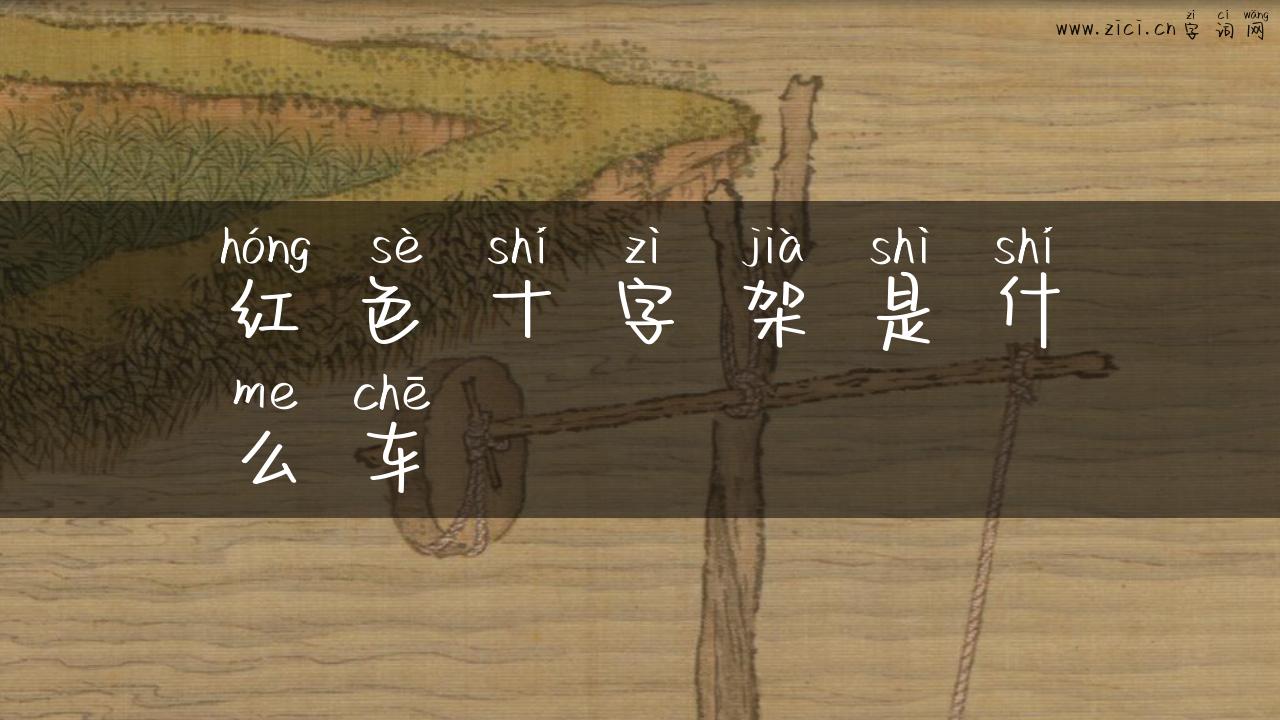 zì cí wǎng
www.zici.cn 字词网
hóng sè shí zì jià shì shí
红色十字架是什
me chē
么车